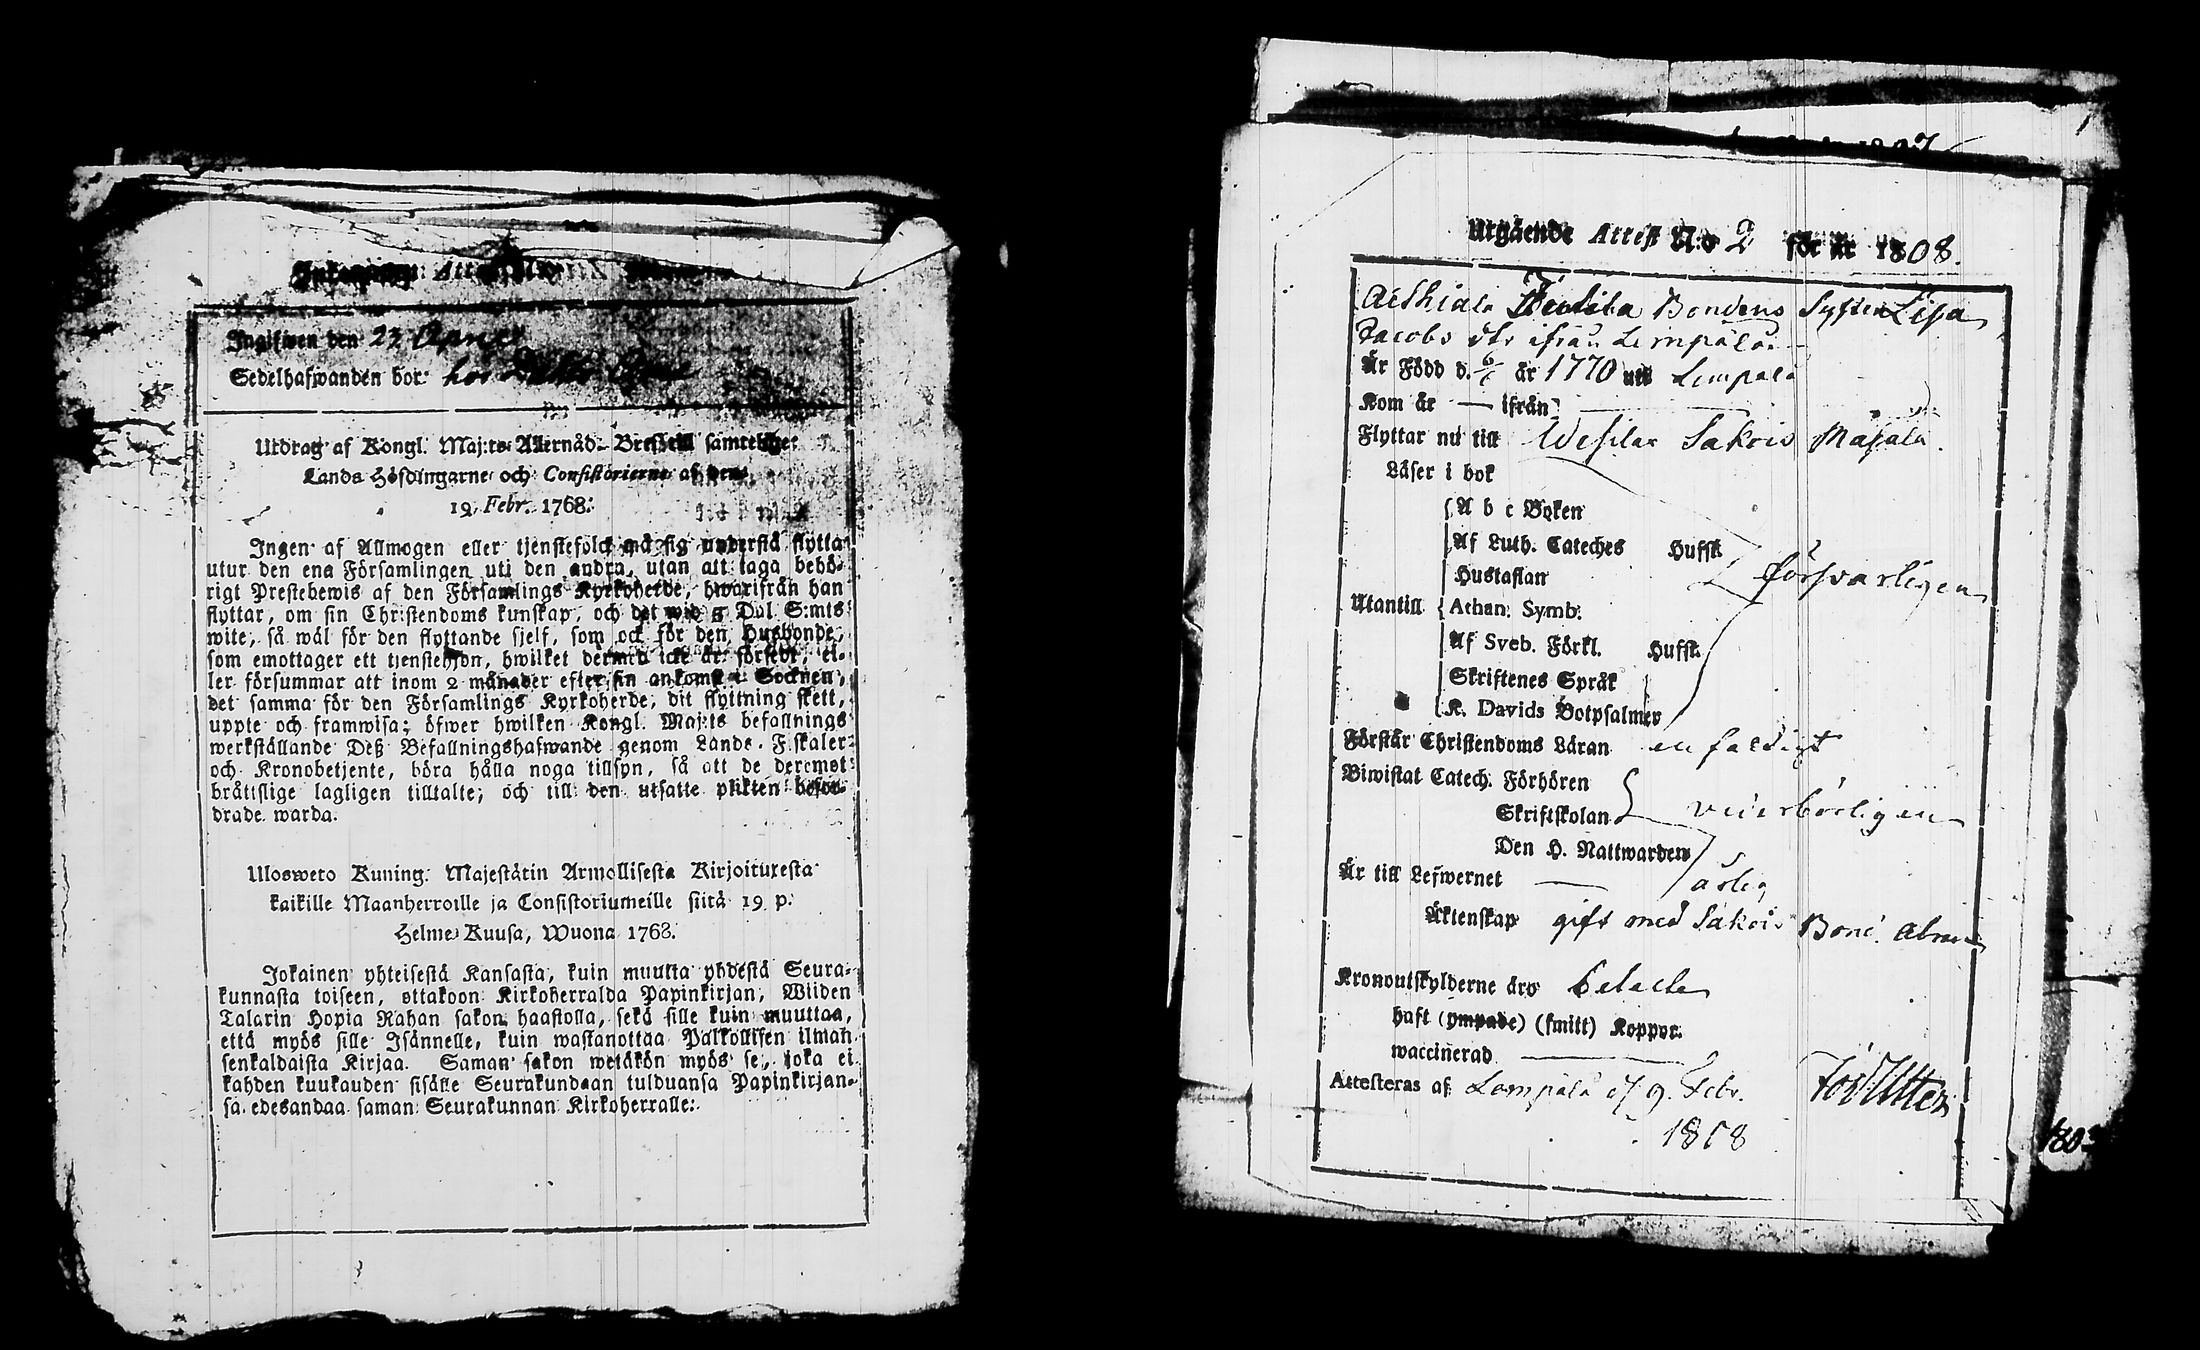 Ingifwen den 23
Sedelhafwanden bor: hos
Utdrag af Kongl. Maj:ts Allernåd. Bref till samtelige
Lands Höfdingarne och Consistorierne af den
19 Febr. 1768.
Ingen af Allmogen eller tjenstefolck må sig understå flytta
utur den ena Församlingen uti den andra, utan att taga behö-
rigt Prestebewis af den Församlings Kyrkoherde, hwarifrån han
flyttar, om sin Christendoms kunskap, och det wid 5 Dal. S:mts
wite, så wäl för den flyttande sjelf, som ock för den Husbonde,
som emottager ett tjenstehjon, hwilket dermed icke är försedt, el-
ler försummar att inom 2 månader efter sin ankomst i Socknen,
det samma för den Församlings Kyrkoherde, dit flyttning skett,
uppte och framwisa; öfwer hwilken Kongl. Maj:ts befallnings
werkställande Deß Befallningshafwande genom Lands-Fiskaler
och Kronobetjente, böra hålla noga tillsyn, så att de deremot
bråttslige lagligen tilltalte, och till den utsatte plikten befor-
drade warda.
Ulosweto Kuning. Majestätin Armollisesta Kirjoituxesta
kaikille Maanherroille ja Consistoriumeille siitä 19 p.
Helme-Kuusa, Wuona 1768.
Jokainen yhteisestä Kansasta, kuin muutta yhdestä Seura-
kunnasta toiseen, ottakoon Kirkoherralda Papinkirjan, Wiiden
Talarin Hopia Rahan sakon haastolla, sekä sille kuin muuttaa,
että myös sille Isännelle, kuin wastanottaa Palkollisen ilman
senkaldaista Kirjaa. Saman sakon wetäkön myös se, joka ei
kahden kuukauden sisälle Seurakundaan tulduansa Papinkirjan-
sa edesandaa saman Seurakunnan Kirkoherralle.
Utgående Attest N:o 2 för år 1808.
Bondens Syster Lisa
Jacobs dtr ifrån Lempälä
Är Född d. 6/ år 1770 uti Lempälä
Kom år — ifrån
Flyttar nu till Wesilax Sakois
Läser i bok
A b c Boken
Af Luth. Cateches Hufst.
Hustaflan
försvarligen
Utantill Athan. Symb.
Af Sveb. Förkl. Hufst.
Skriftenes Språk
K. Davids Botpsalmer
Förstår Christendoms Läran enfaldigt
Biwistat Catech. Förhören
Skriftskolan vederbörligen
Den H. Nattwarden
Är till Lefwernet — ärlig
Äktenskap gift med Sakois Bond.
Kronoutskylderne äro betalte
haft (ympade) (smitt) Koppor.
waccinerad —
Attesteras af Lempälä d. 9. Febr.
1808
1803